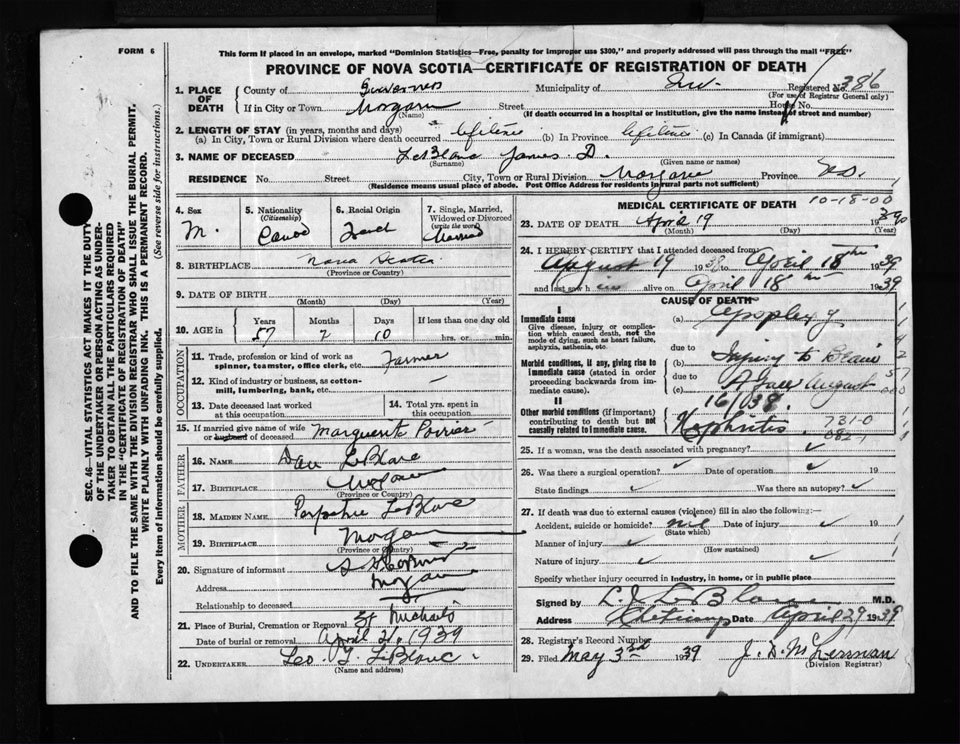 FORM 6
This form if placed in an envelope, marked "Dominion Statistics—Free, penalty for improper use $300," and properly addressed will pass through the mail "FREE"
PROVINCE OF NOVA SCOTIA—CERTIFICATE OF REGISTRATION OF DEATH
Registered No. 386
(For use of Registrar General only)
1. PLACE OF DEATH
County of Inverness Municipality of Inv.
If in City or Town Street House No.
(Name) (If death occurred in a hospital or institution, give the name instead of street and number)
2. LENGTH OF STAY (in years, months and days)
(a) In City, Town or Rural Division where death occurred lifetime (b) In Province lifetime (c) In Canada (if immigrant)
3. NAME OF DECEASED LeBlanc James D.
(Surname) (Given name or names)
RESIDENCE No. Street City, Town or Rural Division Margaree Province N.S.
(Residence means usual place of abode. Post Office Address for residents in rural parts not sufficient)
4. Sex M.
5. Nationality (Citizenship)
6. Racial Origin French
7. Single, Married, Widowed or Divorced (write the word) Married
8. BIRTHPLACE Nova Scotia
(Province or Country)
9. DATE OF BIRTH
(Month) (Day) (Year)
10. AGE in Years Months Days If less than one day old
57 2 10 hrs. or min.
OCCUPATION
11. Trade, profession or kind of work as spinner, teamster, office clerk, etc. Farmer
12. Kind of industry or business, as cotton-mill, lumbering, bank, etc. —
13. Date deceased last worked at this occupation
14. Total yrs. spent in this occupation
15. If married give name of wife or husband of deceased Marguerite Poirier
FATHER
16. NAME Dan LeBlanc
17. BIRTHPLACE Margaree
(Province or Country)
MOTHER
18. MAIDEN NAME LeBlanc
19. BIRTHPLACE Margaree
(Province or Country)
20. Signature of informant
Address Margaree
Relationship to deceased
21. Place of Burial, Cremation or Removal St Michael's
Date of burial or removal April 21, 1939
22. UNDERTAKER Leo LeBlanc
(Name and address)
MEDICAL CERTIFICATE OF DEATH 10-18-00
23. DATE OF DEATH April 19 1939
(Month) (Day) (Year)
24. I HEREBY CERTIFY that I attended deceased from:
August 19 1938 to April 18th 1939
and last saw him alive on April 18th 1939
CAUSE OF DEATH
I
Immediate cause
Give disease, injury or complication which caused death, not the mode of dying, such as heart failure, asphyxia, asthenia, etc.
(a) Apoplexy
due to
Morbid conditions, if any, giving rise to immediate cause (stated in order proceeding backwards from immediate cause).
(b) Injury to Brain
due to
(c) A fall August 16/038.
II
Other morbid conditions (if important) contributing to death but not causally related to immediate cause.
Nephritis 731-0
082-1
25. If a woman, was the death associated with pregnancy? ✓
26. Was there a surgical operation? ✓ Date of operation ✓ 19
State findings ✓ Was there an autopsy? ✓
27. If death was due to external causes (violence) fill in also the following:—
Accident, suicide or homicide? nil Date of injury ✓ 19
(State which)
Manner of injury ✓
(How sustained)
Nature of injury ✓ ✓
Specify whether injury occurred in industry, in home, or in public place
Signed by L. J. LeBlanc M.D.
Address Cheticamp Date April 29 1939
28. Registrar's Record Number
29. Filed May 3rd 1939
(Division Registrar)
SEC. 46—VITAL STATISTICS ACT MAKES IT THE DUTY OF THE UNDERTAKER OR PERSON ACTING AS UNDERTAKER TO OBTAIN ALL THE PARTICULARS REQUIRED IN THE "CERTIFICATE OF REGISTRATION OF DEATH" AND TO FILE THE SAME WITH THE DIVISION REGISTRAR WHO SHALL ISSUE THE BURIAL PERMIT.
WRITE PLAINLY WITH UNFADING INK. THIS IS A PERMANENT RECORD.
Every item of information should be carefully supplied. (See reverse side for instructions.)